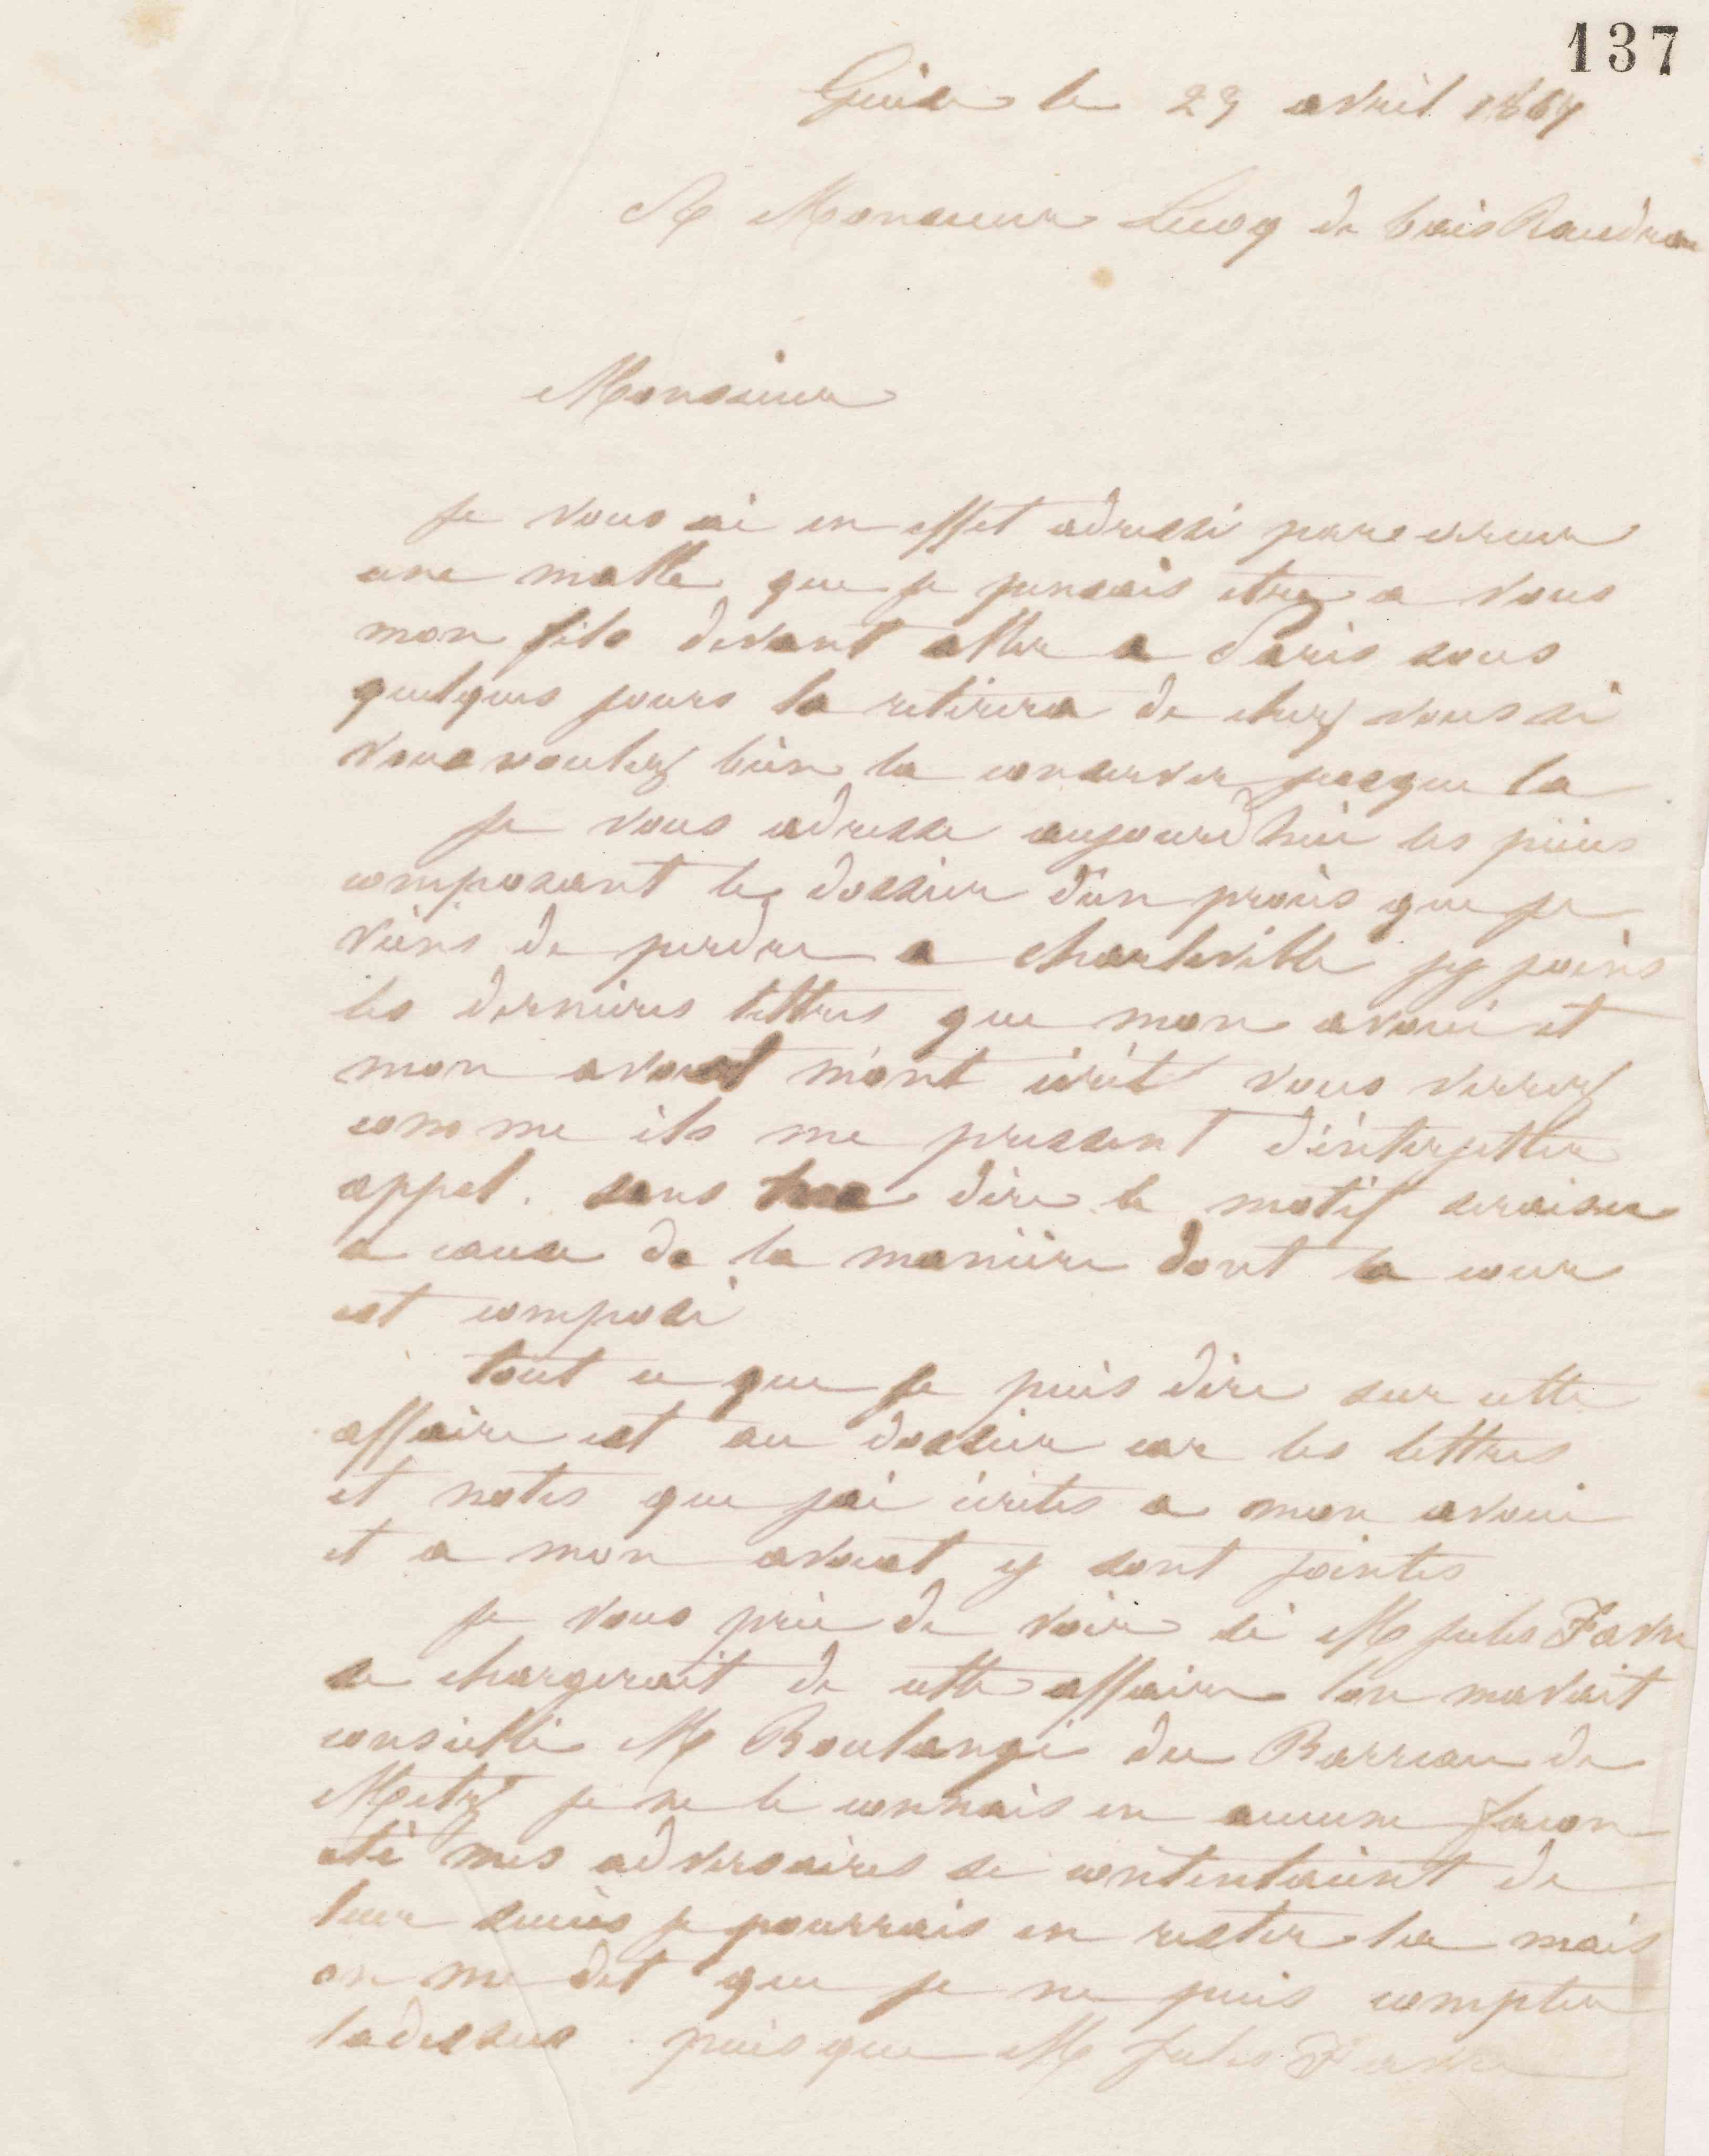 137
Guise le 29 avril 1867
A Monsieur Lecoq de bois Baudran
Monsieur
je vous ai en effet adressé par erreur
une malle que je pensais etre a vous
mon fils devant aller a Paris sous
quelques jours la retirera de chez vous si
vous voulez bien la conserver jusque la
je vous adresse aujourd'hui les pièces
composant le dossier d'un procès que je
viens de perdre a charleville j'y joins
les dernieres lettres que mon avoué et
mon avocat m'ont écrit vous verrez
comme ils me pressent d'interjetter
appel. sans dire le motif
a cause de la manière dont la cour
est composé
tout ce que je puis dire sur cette
affaire est au dossier car les lettres
et notes que j'ai écrites a mon avoué
et a mon avocat y sont jointes
je vous prie de voir si M Jules Favre
se chargerait de cette affaire l'on mavait
conseillé M Boulangé du Barreau de
Metz je ne le connais en aucune facon
si mes adversaires se contentaient de
leur succès je pourrais en rester la mais
on me dit que je ne puis compter
ladessus puisque M Jules Favre